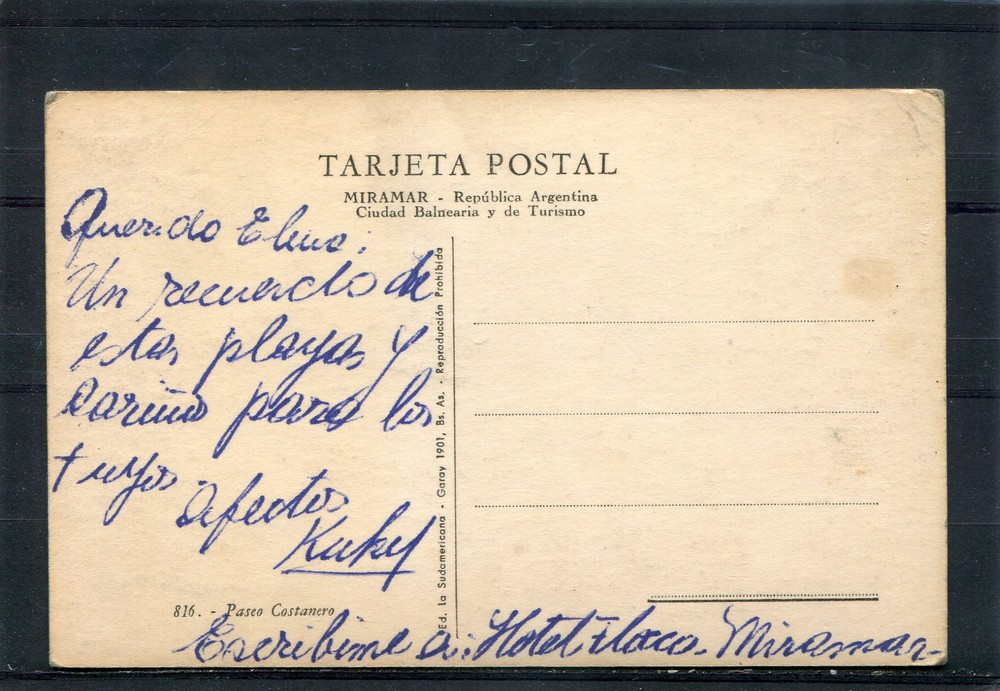 TARJETA POSTAL
MIRAMAR - República Argentina
Ciudad Balnearia y de Turismo
Querido
Un recuerdo de
estas playas y
cariño para los
tuyos.
afectos
Kuky
Ed. La Sudamericana - Garay 1901, Bs. As. - Reproducción Prohibida
816. - Paseo Costanero
Escribime a: Hotel Miramar-